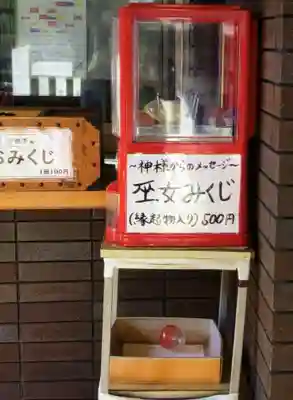 おみくじ
1回100円
~神様からのメッセージ~
巫女みくじ
(縁起物入り)500円